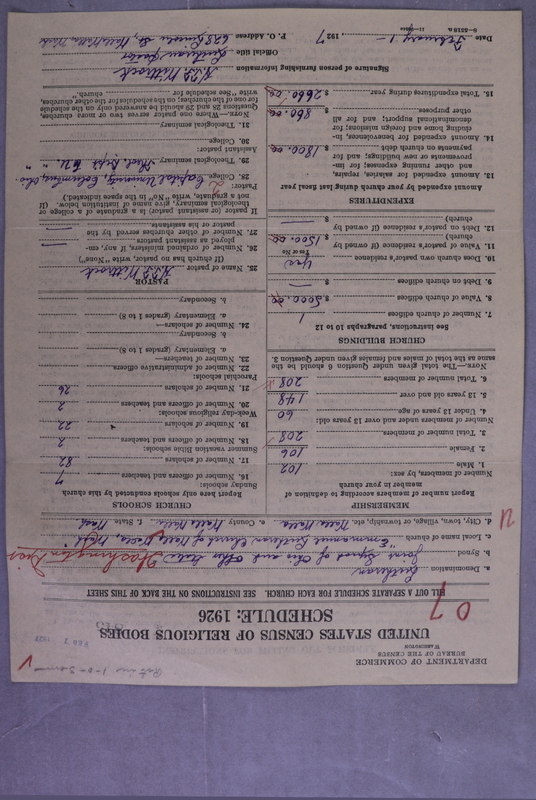 DEPARTMENT OF COMMERCE
BUREAU OF THE CENSUS
WASHINGTON
FEB 7 1927
UNITED STATES CENSUS OF RELIGIOUS BODIES
SCHEDULE: 1926
FILL OUT A SEPARATE SCHEDULE FOR EACH CHURCH. SEE INSTRUCTIONS ON THE BACK OF THIS SHEET
a. Denomination Lutheran
b. Synod Joint Synod of Ohio and Other States
Washington Dist
c. Local name of church "Emmanuel Lutheran Church of Walla Walla, Wash"
d. City, town, village, or township, etc. Walla Walla e. County Walla Walla f. State Wash
MEMBERSHIP
Report number of members according to definition of
member in your church
Number of members, by sex:
1. Male 102
2. Female 106
3. Total number of members 208
Number of members under and over 13 years old:
4. Under 13 years of age 60
5. 13 years old and over 148
6. Total number of members 208
NOTE.—The total given under Question 6 should be the
same as the total of males and females given under Question 3.
CHURCH BUILDINGS
See instructions, paragraphs 10 to 12
7. Number of church edifices 1
8. Value of church edifices $ 5000.00
9. Debt on church edifices $ —
10. Does church own pastor's residence Yes
Yes or No
11. Value of pastor's residence (if owned by
church) $ 1500.00
12. Debt on pastor's residence (if owned by
church) $ —
EXPENDITURES
Amount expended by your church during last fiscal year
13. Amount expended for salaries, repairs,
and other running expenses; for improvements or new buildings; and for
payments on church debt $ 1800.00
14. Amount expended for benevolences, including home and foreign missions; for
denominational support; and for all
other purposes $ 860.00
15. Total expenditures during year $ 2660.00
CHURCH SCHOOLS
Report here only schools conducted by this church
Sunday schools:
16. Number of officers and teachers 7
17. Number of scholars 82
Summer vacation Bible schools:
18. Number of officers and teachers 2
19. Number of scholars 22
Week-day religious schools:
20. Number of officers and teachers 2
21. Number of scholars 26
Parochial schools:
22. Number of administrative officers
23. Number of teachers—
a. Elementary (grades 1 to 8)
b. Secondary
24. Number of scholars—
a. Elementary (grades 1 to 8)
b. Secondary
PASTOR
25. Name of pastor
(If church has no pastor, write "None")
26. Number of ordained ministers, if any, employed as assistant pastors —
27. Number of other churches served by the
pastor or his assistants —
If pastor (or assistant pastor) is a graduate of a college or
theological seminary, give name of institution below. (If
not a graduate, write "No" in the space indicated.)
Pastor:
28. College Capital University, Columbus, Ohio
29. Theological seminary Theol. Dept. C.U. " "
Assistant pastor:
30. College
31. Theological seminary
NOTE.—Where one pastor serves two or more churches,
Questions 25 and 29 should be answered only on the schedule
for one of the churches; on the schedules for the other churches,
write "See schedule for church."
Signature of person furnishing information
Official title Lutheran Pastor
Date February 1 —, 1927 P. O. Address 628 Lincoln St, Walla Walla, Wash